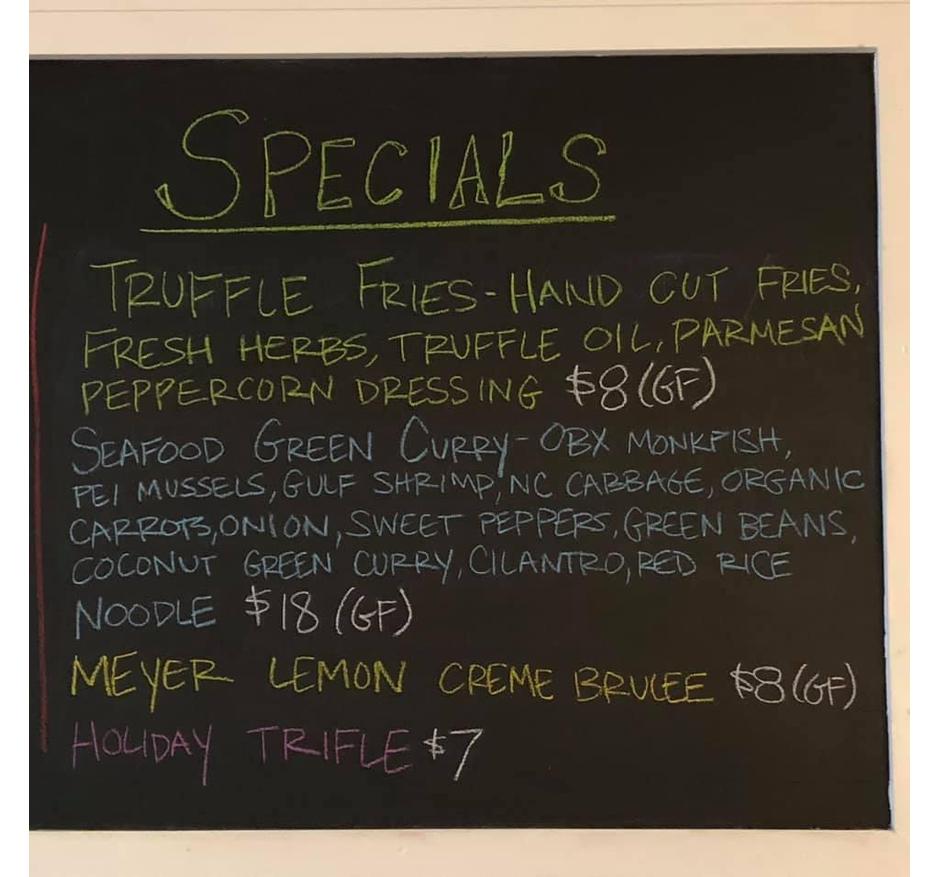 SPECIALS
TRUFFLE FRIES-HAND CUT FRIES,
FRESH HERBS, TRUFFLE OIL, PARMESAN
PEPPERCORN DRESSING $8 (GF)
SEAFOOD GREEN CURRY-OBX MONKFISH,
PEI MUSSELS, GULF SHRIMP, NC CABBAGE, ORGANIC
CARROTS, ONION, SWEET PEPPERS, GREEN BEANS,
COCONUT GREEN CURRY, CILANTRO, RED RICE
NOODLE $18 (GF)
MEYER LEMON CREME BRULEE $8 (GF)
HOLIDAY TRIFLE $7